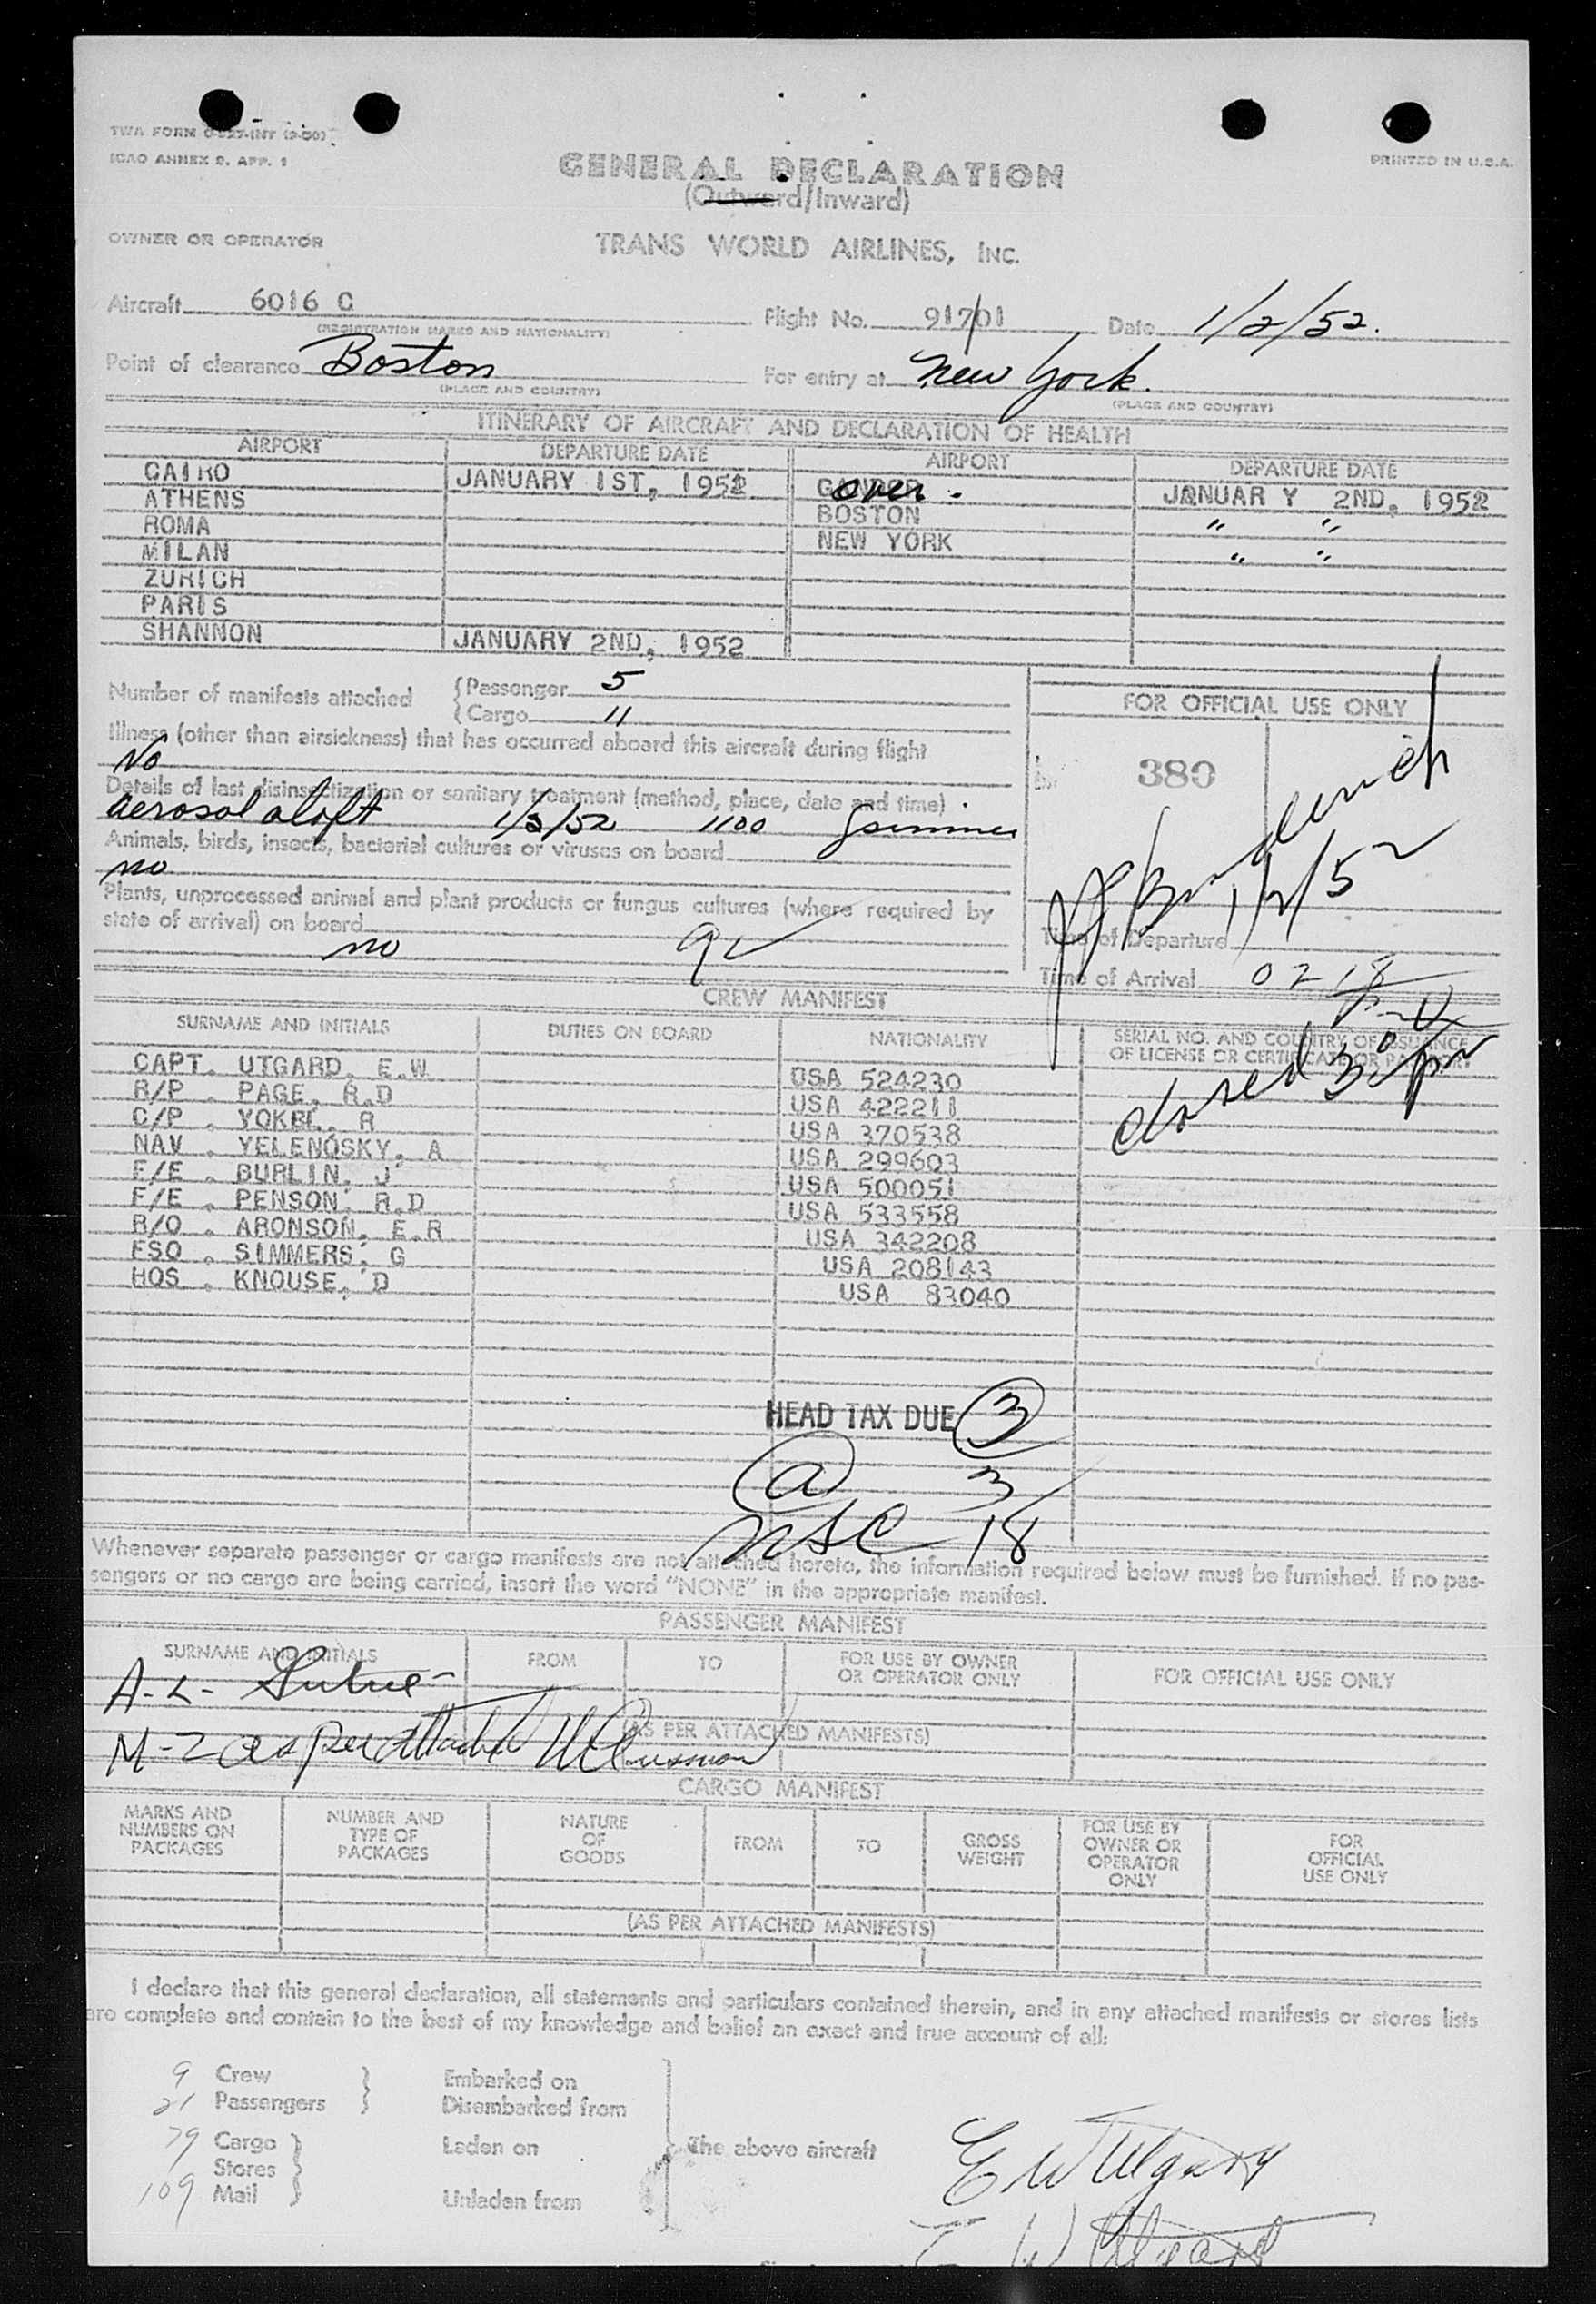 TWA FORM
ICAO ANNEX 9, APP. 1
PRINTED IN U.S.A.
GENERAL DECLARATION
(Outward/Inward)
OWNER OR OPERATOR
TRANS WORLD AIRLINES, INC.
Aircraft 6016 C Flight No. 917/01 Date 1/2/52.
(REGISTRATION MARKS AND NATIONALITY)
Point of clearance Boston For entry at New York.
(PLACE AND COUNTRY) (PLACE AND COUNTRY)
ITINERARY OF AIRCRAFT AND DECLARATION OF HEALTH
AIRPORT DEPARTURE DATE AIRPORT DEPARTURE DATE
CAIRO JANUARY 1ST, 1952 GANDER over. JANUAR Y 2ND, 1952
ATHENS BOSTON " "
ROMA NEW YORK " "
MILAN
ZURICH
PARIS
SHANNON JANUARY 2ND, 1952
Number of manifests attached
{ Passenger 5
{ Cargo 11
FOR OFFICIAL USE ONLY
Illness (other than airsickness) that has occurred aboard this aircraft during flight
No
380
Details of last disinsectization or sanitary treatment (method, place, date and time)
aerosol aloft 1/2/52 1100 Gsimmers
Animals, birds, insects, bacterial cultures or viruses on board
no
1/2/52
Plants, unprocessed animal and plant products or fungus cultures (where required by
state of arrival) on board
no
Time of Departure
Time of Arrival 02
CREW MANIFEST
SURNAME AND INITIALS DUTIES ON BOARD NATIONALITY SERIAL NO. AND COUNTRY OF ISSUANCE
OF LICENSE OR CERTIFICATE OR PASSPORT
closed 3 pm
CAPT. UTGARD. E.W USA 524230
R/P . PAGE. R.D USA 422211
C/P . YOKEL. R USA 370538
NAV . YELENOSKY. A USA 299603
F/E . BURLIN. J USA 500051
F/E . PENSON. R.D USA 533558
R/O . ARONSON. E.R USA 342208
FSO . SIMMERS. G USA 208143
HOS . KNOUSE. D USA 83040
HEAD TAX DUE 3
a 3
USC 18
Whenever separate passenger or cargo manifests are not attached hereto, the information required below must be furnished. If no pas-
sengers or no cargo are being carried, insert the word "NONE" in the appropriate manifest.
PASSENGER MANIFEST
SURNAME AND INITIALS FROM TO FOR USE BY OWNER
OR OPERATOR ONLY FOR OFFICIAL USE ONLY
A-L-
(AS PER ATTACHED MANIFESTS)
M-2 as per attached
CARGO MANIFEST
MARKS AND
NUMBERS ON
PACKAGES
NUMBER AND
TYPE OF
PACKAGES
NATURE
OF
GOODS
FROM
TO
GROSS
WEIGHT
FOR USE BY
OWNER OR
OPERATOR
ONLY
FOR
OFFICIAL
USE ONLY
(AS PER ATTACHED MANIFESTS)
I declare that this general declaration, all statements and particulars contained therein, and in any attached manifests or stores lists
are complete and contain to the best of my knowledge and belief an exact and true account of all:
9 Crew } Embarked on
21 Passengers } Disembarked from
79 Cargo } Laden on The above aircraft
Stores
109 Mail } Unladen from
E W Utgard
E W Utgard